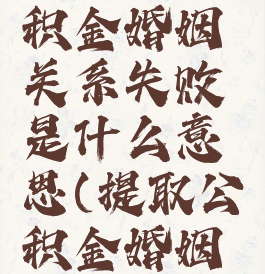 积金婚姻
关系失败
是什么意
思(提取公
积金婚姻